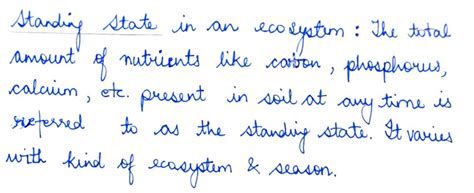 Standing State in an ecosystem : The total
amount of nutrients like carbon, phosphorus,
calcium, etc. present in soil at any time is
referred to as the standing state. It varies
with kind of ecosystem & season.